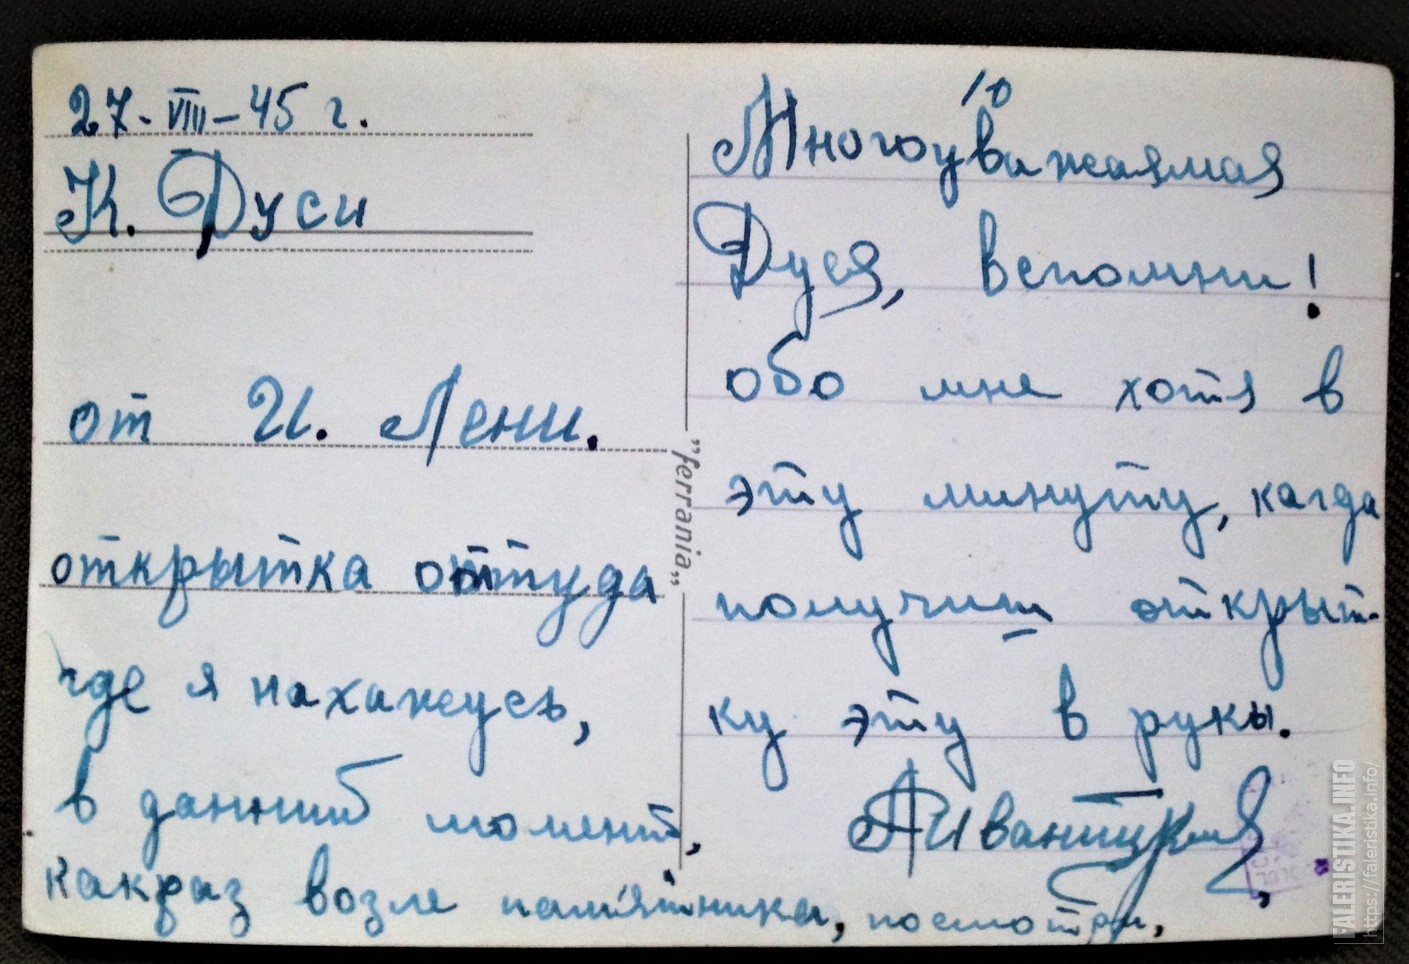 27-VIII-45 г.
К. Дуси
от И. Лени.
открытка оттуда
где я нахажусь,
в данний момент,
какраз возле памятника, посмотри,
"ferrania"
10
Многоуважаямая
Дуся, вспомни!
обо мне хотя в
эту минуту, кагда
получиш открыт-
ку эту в руки.
FALERISTIKA.INFO
https://faleristika.info/